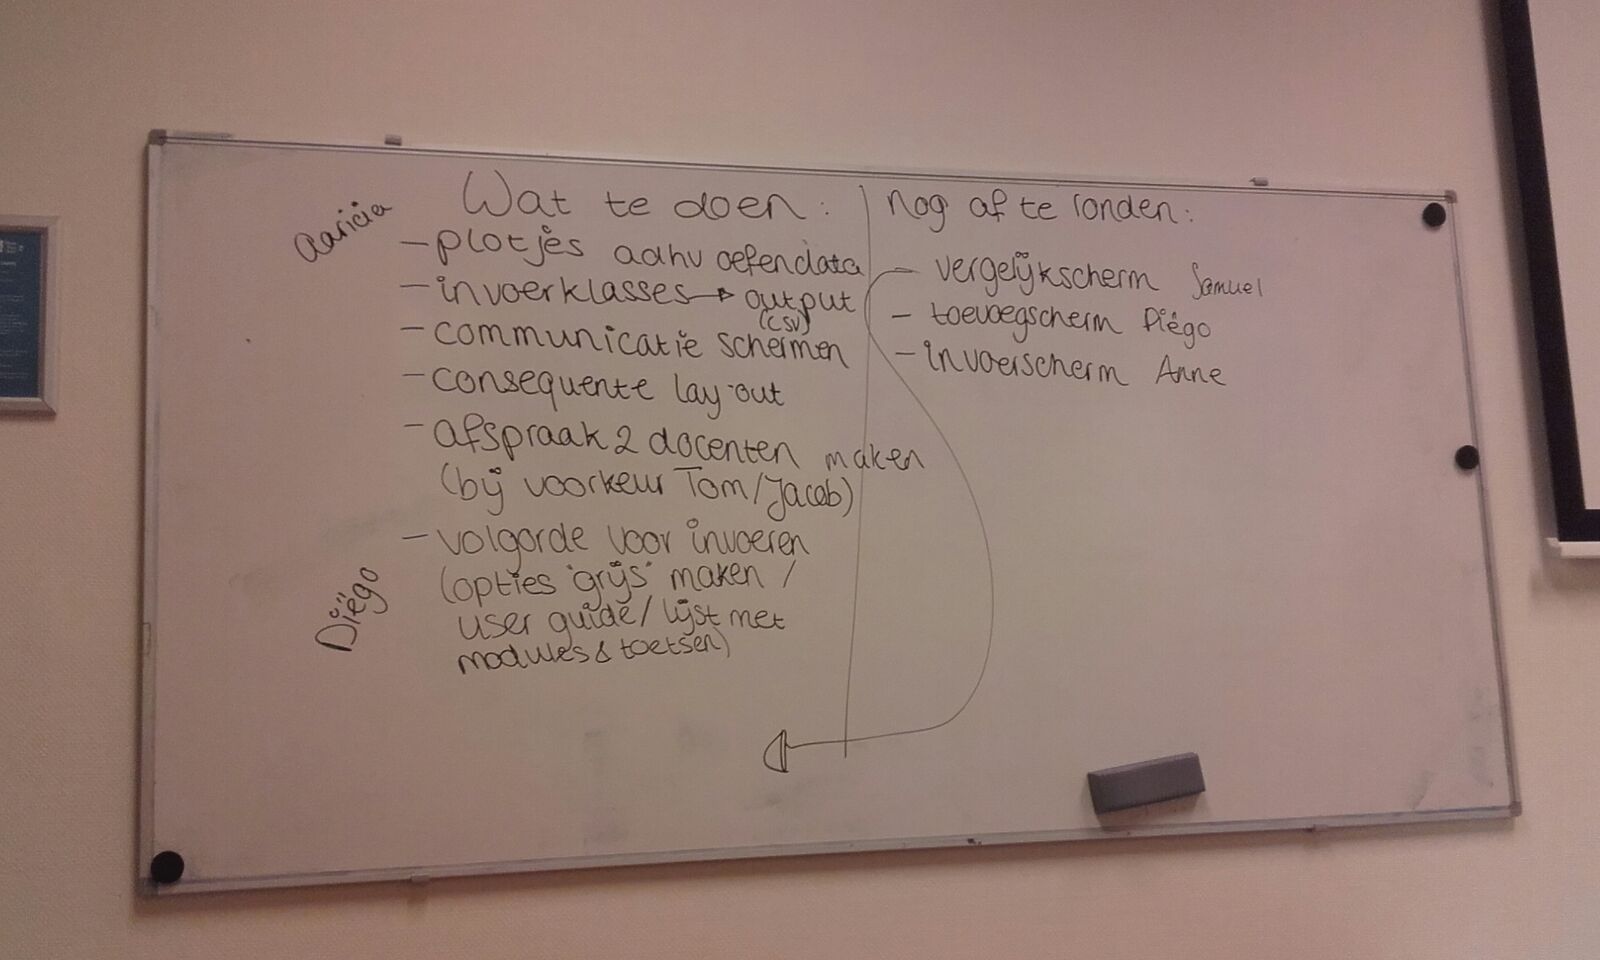 Aaricia
Wat te doen:
- plotjes adhv oefendata
- invoerklasses → output
(CSV)
- communicatie schermen
- consequente lay-out
- afspraak 2 docenten maken
(bij voorkeur Tom/Jacob)
- volgorde voor invoeren
(opties 'grijs' maken /
user guide/ lijst met
modules & toetsen)
Diëgo
nog af te ronden:
- vergelijkscherm Samuel
- toevoegscherm Diëgo
- invoerscherm Anne